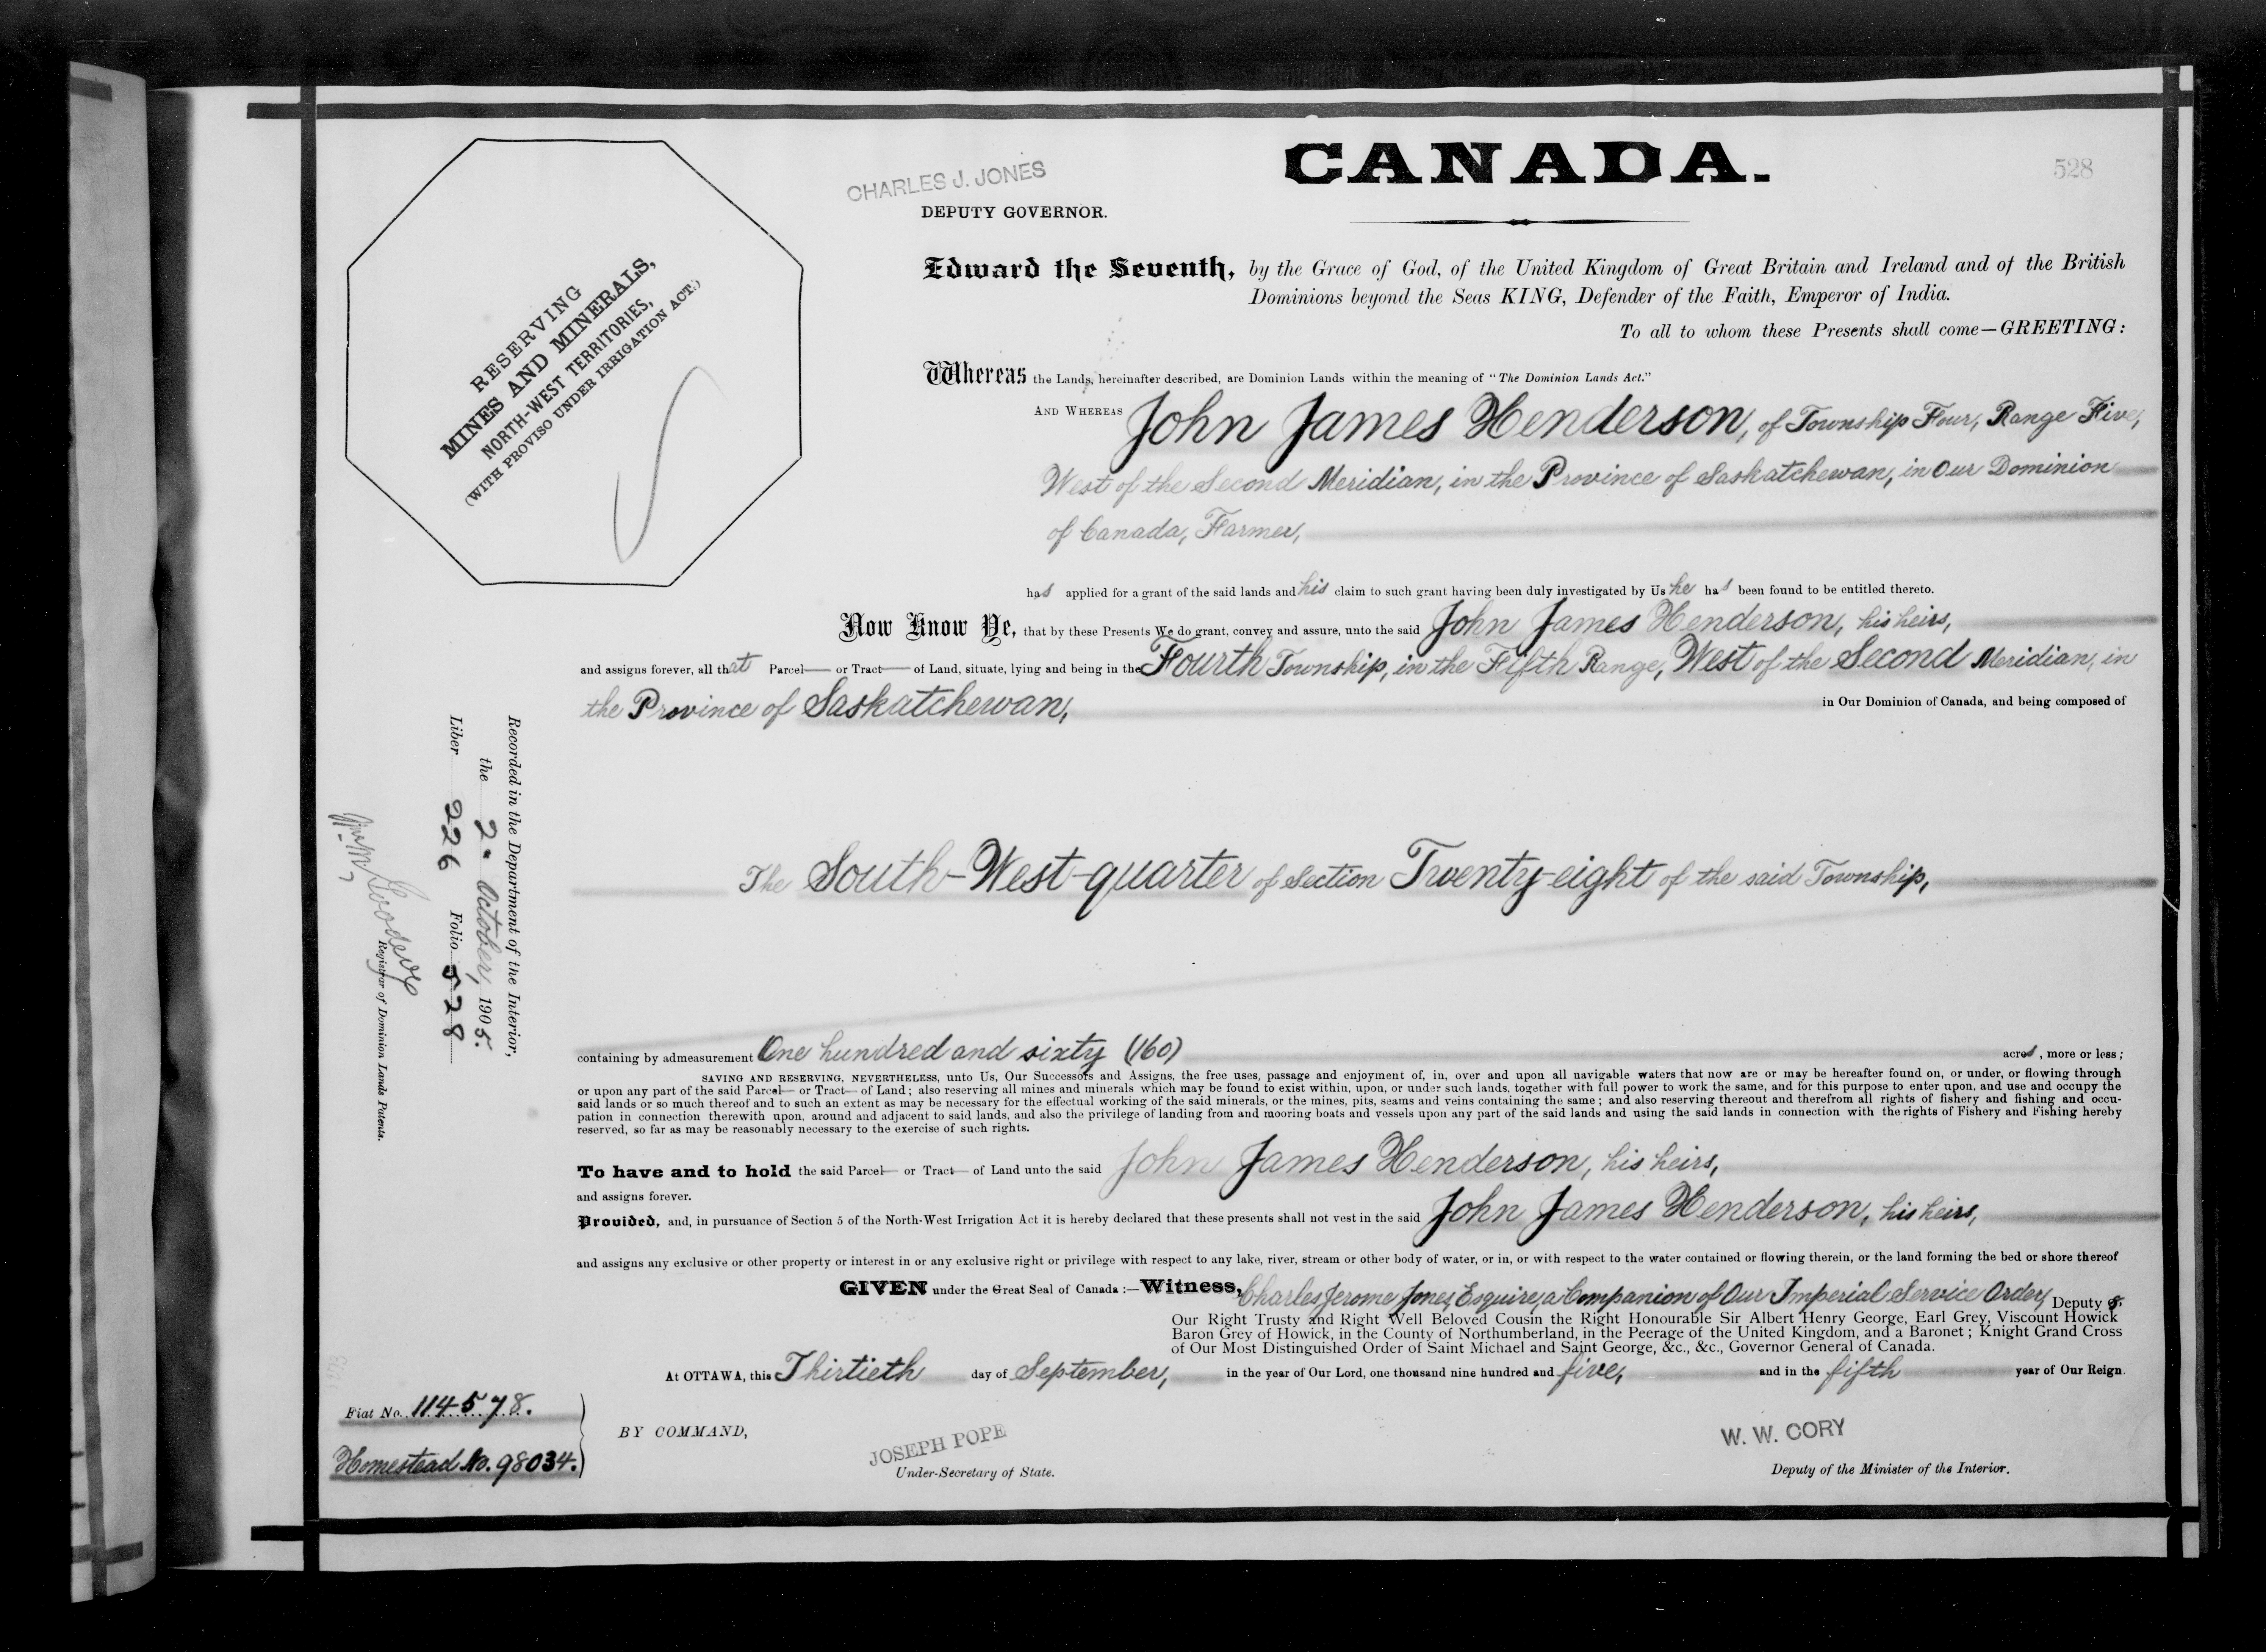 CANADA.
528
CHARLES J. JONES
DEPUTY GOVERNOR.
RESERVING
MINES AND MINERALS,
NORTH-WEST TERRITORIES,
(WITH PROVISO UNDER IRRIGATION ACT.)
Edward the Seventh, by the Grace of God, of the United Kingdom of Great Britain and Ireland and of the British
Dominions beyond the Seas KING, Defender of the Faith, Emperor of India.
To all to whom these Presents shall come—GREETING:
Whereas the Lands, hereinafter described, are Dominion Lands within the meaning of "The Dominion Lands Act."
AND WHEREAS John James Henderson, of Township Four, Range Five,
West of the Second Meridian, in the Province of Saskatchewan, in Our Dominion
of Canada, Farmer,
has applied for a grant of the said lands and his claim to such grant having been duly investigated by Us he has been found to be entitled thereto.
Now Know Ye, that by these Presents We do grant, convey and assure, unto the said John James Henderson, his heirs,
and assigns forever, all that Parcel— or Tract— of Land, situate, lying and being in the Fourth Township, in the Fifth Range, West of the Second Meridian, in
the Province of Saskatchewan, in Our Dominion of Canada, and being composed of
The South-West-quarter of Section Twenty-eight of the said Township,
containing by admeasurement One hundred and sixty (160) acres, more or less;
SAVING AND RESERVING, NEVERTHELESS, unto Us, Our Successors and Assigns, the free uses, passage and enjoyment of, in, over and upon all navigable waters that now are or may be hereafter found on, or under, or flowing through
or upon any part of the said Parcel— or Tract— of Land; also reserving all mines and minerals which may be found to exist within, upon, or under such lands, together with full power to work the same, and for this purpose to enter upon, and use and occupy the
said lands or so much thereof and to such an extent as may be necessary for the effectual working of the said minerals, or the mines, pits, seams and veins containing the same; and also reserving thereout and therefrom all rights of fishery and fishing and occu-
pation in connection therewith upon, around and adjacent to said lands, and also the privilege of landing from and mooring boats and vessels upon any part of the said lands and using the said lands in connection with the rights of Fishery and Fishing hereby
reserved, so far as may be reasonably necessary to the exercise of such rights.
To have and to hold the said Parcel— or Tract— of Land unto the said John James Henderson, his heirs,
and assigns forever.
Provided, and, in pursuance of Section 5 of the North-West Irrigation Act it is hereby declared that these presents shall not vest in the said John James Henderson, his heirs,
and assigns any exclusive or other property or interest in or any exclusive right or privilege with respect to any lake, river, stream or other body of water, or in, or with respect to the water contained or flowing therein, or the land forming the bed or shore thereof
GIVEN under the Great Seal of Canada:—Witness, Charles Jerome Jones, Esquire, a Companion of Our Imperial Service Order, Deputy of
Our Right Trusty and Right Well Beloved Cousin the Right Honourable Sir Albert Henry George, Earl Grey, Viscount Howick
Baron Grey of Howick, in the County of Northumberland, in the Peerage of the United Kingdom, and a Baronet; Knight Grand Cross
of Our Most Distinguished Order of Saint Michael and Saint George, &c., &c., Governor General of Canada.
At OTTAWA, this Thirtieth day of September, in the year of Our Lord, one thousand nine hundred and five, and in the fifth year of Our Reign.
BY COMMAND,
JOSEPH POPE
Under-Secretary of State.
W. W. CORY
Deputy of the Minister of the Interior.
Fiat No. 114578.
Homestead No. 98034.
Recorded in the Department of the Interior,
the 2. October, 1905.
Liber 226 Folio 528
Goodeve
Registrar of Dominion Lands Patents.